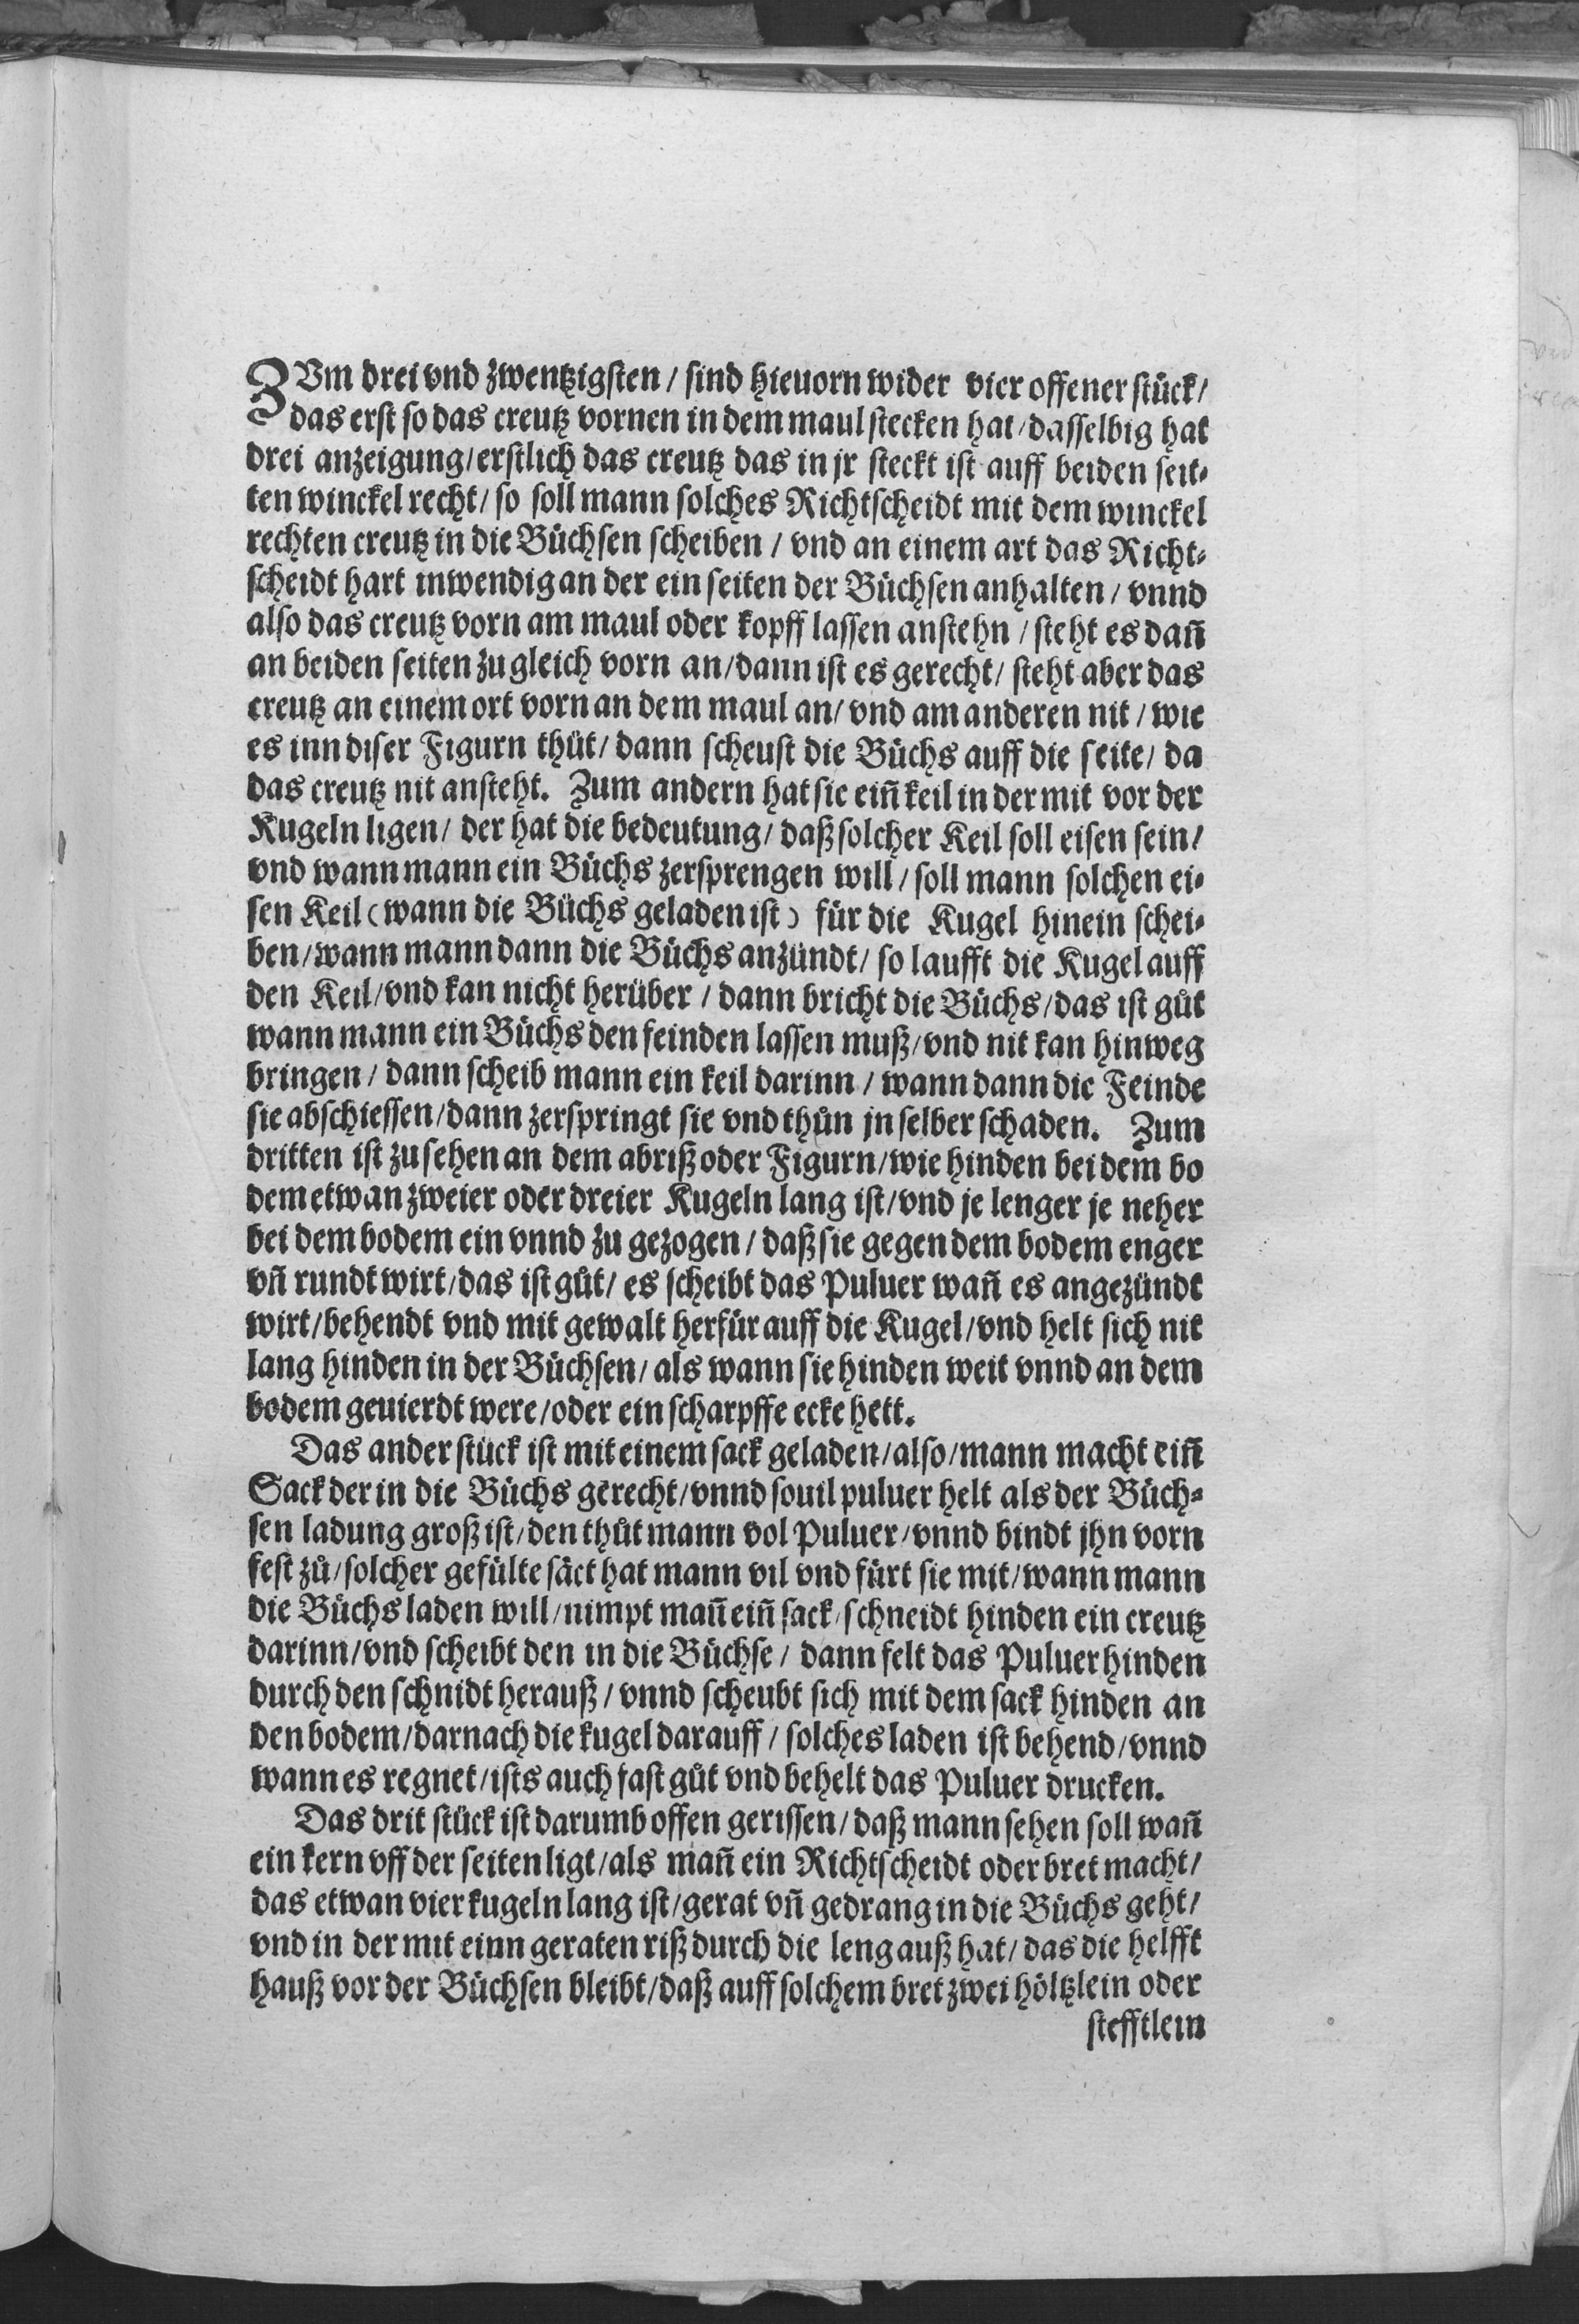 ZVm drei vnd zwentzigsten / sind hieuorn wider vier offener stück /
das erst so das creutz vornen in dem maul stecken hat / dasselbig hat
drei anzeigung / erstlich das creutz das in jr steckt ist auff beiden seit-
ten winckel recht / so soll mann solches Richtscheidt mit dem winckel
rechten creutz in die Büchsen scheiben / vnd an einem art das Richt-
scheidt hart inwendig an der ein seiten der Büchsen anhalten / vnnd
also das creutz vorn am maul oder kopff lassen anstehn / steht es dañ
an beiden seiten zu gleich vorn an / dann ist es gerecht / steht aber das
creutz an einem ort vorn an dem maul an / vnd am anderen nit / wie
es inn diser Figurn thůt / dann scheust die Büchs auff die seite / da
das creutz nit ansteht. Zum andern hat sie eiñ keil in der mit vor der
Kugeln ligen / der hat die bedeutung / daß solcher Keil soll eisen sein /
vnd wann mann ein Büchs zersprengen will / soll mann solchen ei-
sen Keil (wann die Büchs geladen ist) für die Kugel hinein schei-
ben / wann mann dann die Büchs anzündt / so laufft die Kugel auff
den Keil / vnd kan nicht herüber / dann bricht die Büchs / das ist gůt
wann mann ein Büchs den feinden lassen muß / vnd nit kan hinweg
bringen / dann scheib mann ein keil darinn / wann dann die Feinde
sie abschiessen / dann zerspringt sie vnd thůn jn selber schaden. Zum
dritten ist zu sehen an dem abriß oder Figurn / wie hinden bei dem bo
dem etwan zweier oder dreier Kugeln lang ist / vnd je lenger je neher
bei dem bodem ein vnnd zu gezogen / daß sie gegen dem bodem enger
vñ rundt wirt / das ist gůt / es scheibt das Puluer wañ es angezündt
wirt / behendt vnd mit gewalt herfür auff die Kugel / vnd helt sich nit
lang hinden in der Büchsen / als wann sie hinden weit vnnd an dem
bodem geuierdt were / oder ein scharpffe ecke hett.
Das ander stück ist mit einem sack geladen / also / mann macht eiñ
Sack der in die Büchs gerecht / vnnd souil puluer helt als der Büch-
sen ladung groß ist / den thůt mann vol Puluer / vnnd bindt jhn vorn
fest zů / solcher gefülte säck hat mann vil vnd fürt sie mit / wann mann
die Büchs laden will / nimpt mañ eiñ sack / schneidt hinden ein creutz
darinn / vnd scheibt den in die Büchse / dann felt das Puluer hinden
durch den schnidt herauß / vnnd scheubt sich mit dem sack hinden an
den bodem / darnach die kugel darauff / solches laden ist behend / vnnd
wann es regnet / ists auch fast gůt vnd behelt das Puluer drucken.
Das drit stück ist darumb offen gerissen / daß mann sehen soll wañ
ein kern vff der seiten ligt / als mañ ein Richtscheidt oder bret macht /
das etwan vier kugeln lang ist / gerat vñ gedrang in die Büchs geht /
vnd in der mit einn geraten riß durch die leng auß hat / das die helfft
hauß vor der Büchsen bleibt / daß auff solchem bret zwei höltzlein oder
stefftlein